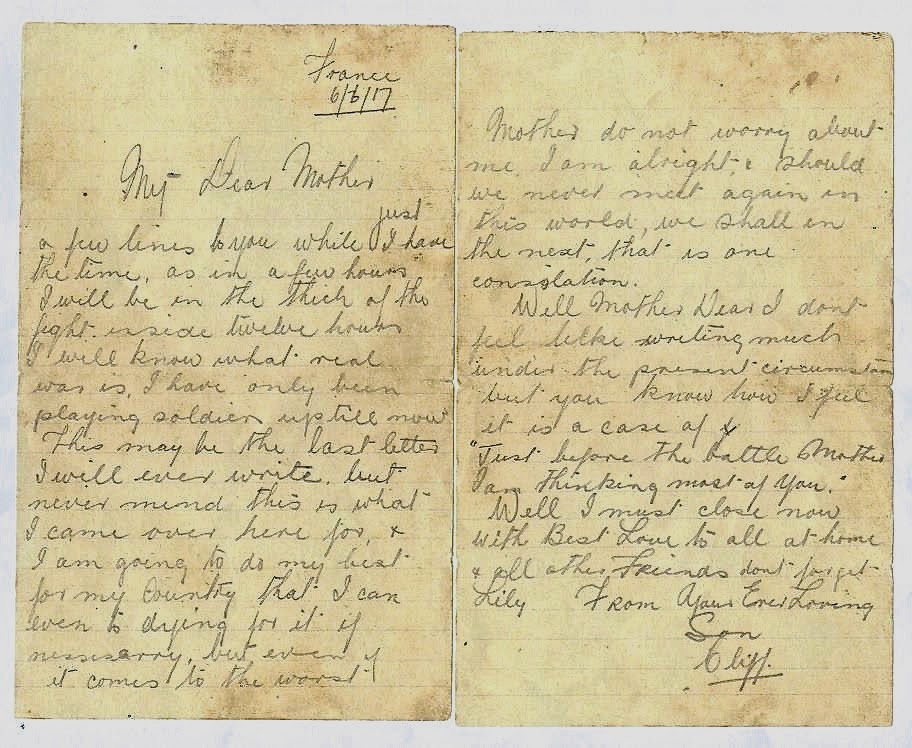 France
6/6/17
My Dear Mother
just
a few lines to you while I have
the time, as in a few hours
I will be in the thick of the
fight. inside twelve hours
I will know what real
war is, I have only been
playing soldier up till now
This may be the last letter
I will ever write. but
never mind this is what
I came over here for, &
I am going to do my best
for my Country that I can
even to dying for it if
nessisarry, but even if
it comes to the worst
Mother do not worry about
me, I am alright, & should
we never meet again in
this world, we shall in
the next, that is one
consolation.
Well Mother Dear I dont
feel like writing much
under the present circumstan
but you know how I feel
it is a case of
"Just before the battle Mother
I am thinking most of you."
Well I must close now
with Best Love to all at home
& all other Friends dont forget
Lily From Your Ever Loving
Son
Cliff.